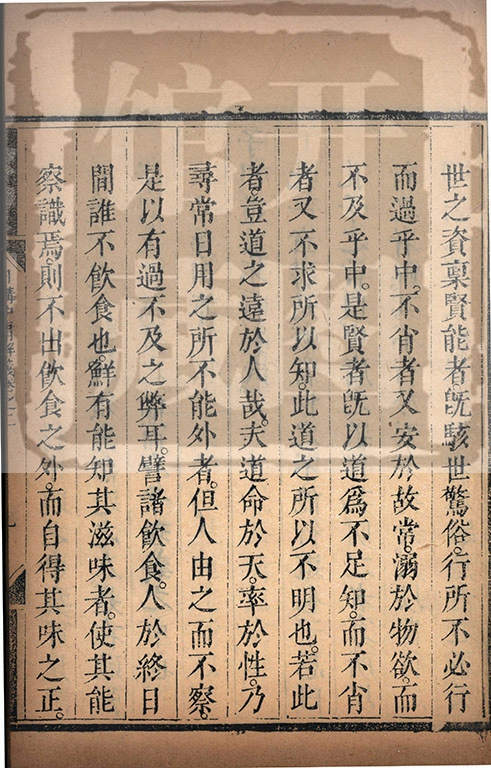 世之資稟賢能者。旣駭世驚俗。行所不必行
而過乎中。不肖者又安於故常。溺於物欲。而
不及乎中。是賢者旣以道爲不足知。而不肖
者又不求所以知。此道之所以不明也。若此
者。豈道之遠於人哉。夫道命於天。率於性。乃
尋常日用之所不能外者。但人由之而不察。
是以有過不及之弊耳。譬諸飲食。人於終日
間誰不飲食也。鮮有能知其滋味者。使其能
察識焉。則不出飲食之外。而自得其味之正。